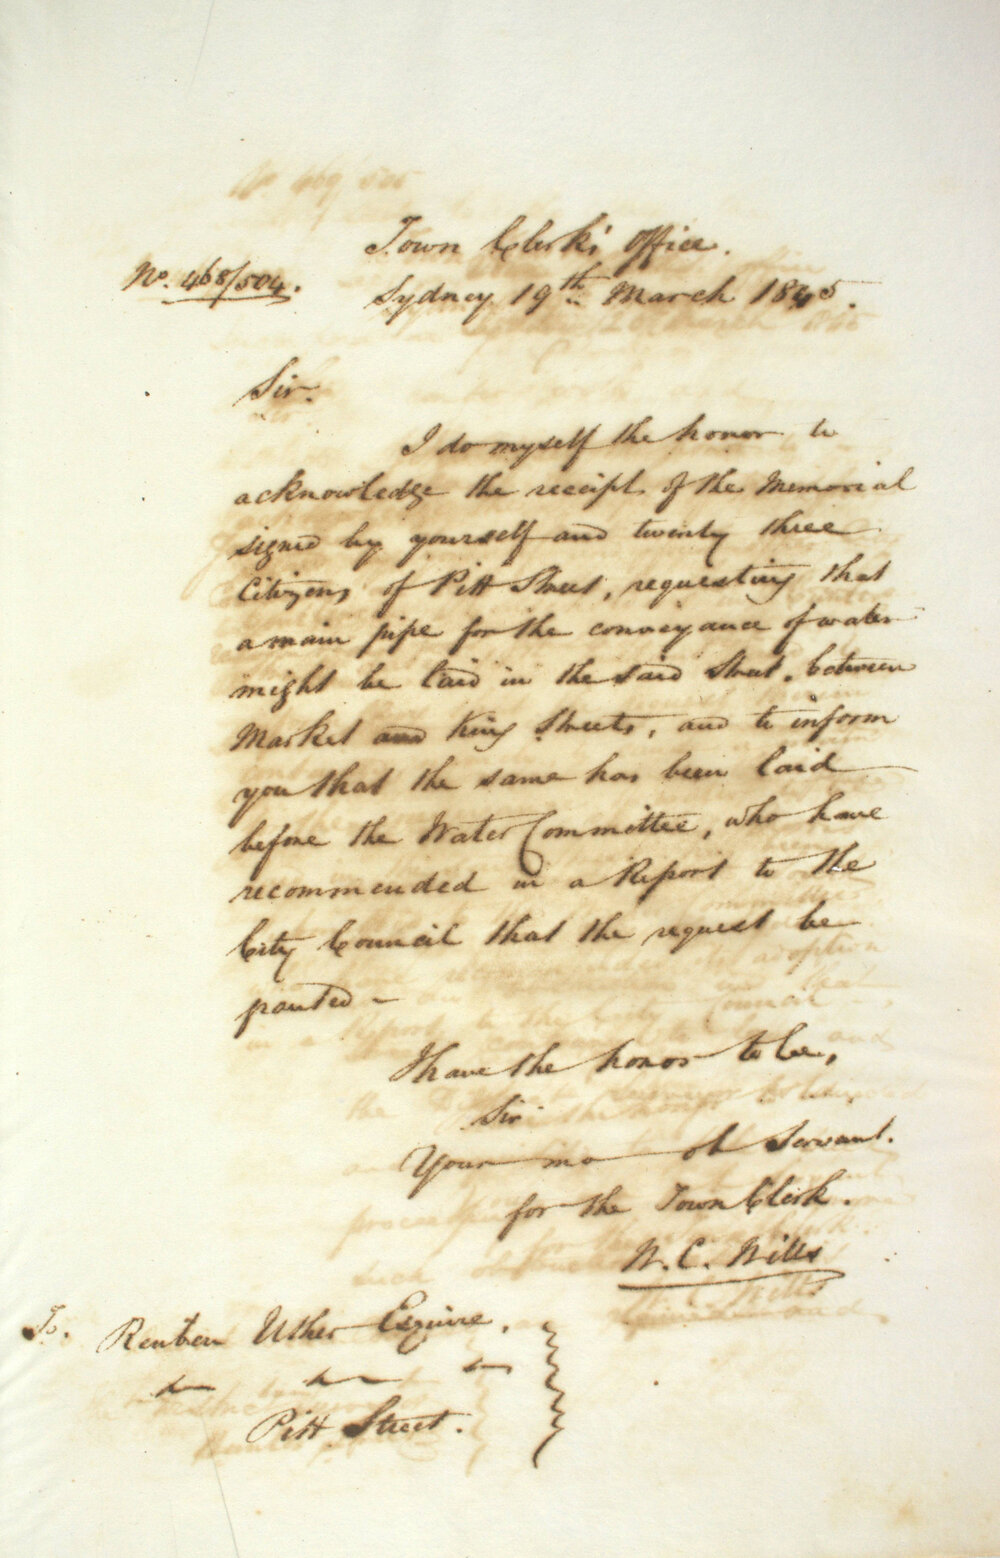 Town Clerk's Office.
No. 468/504.
Sydney 19th March 1845.
Sir.
I do myself the honor to
acknowledge the receipt of the Memorial
signed by yourself and twenty three
Citizens of Pitt Street, requesting that
a main pipe for the conveyance of water
might be laid in the said Street, between
Market and King Streets, and to inform
you that the same has been laid
before the Water Committee, who have
recommended in a Report to the
City Council that the request be
granted -
I have the honor to be,
Sir
Your mo ob Servant.
for the Town Clerk.
W. C. Wills
To.
Reuben Uther Esquire,
Pitt Street.